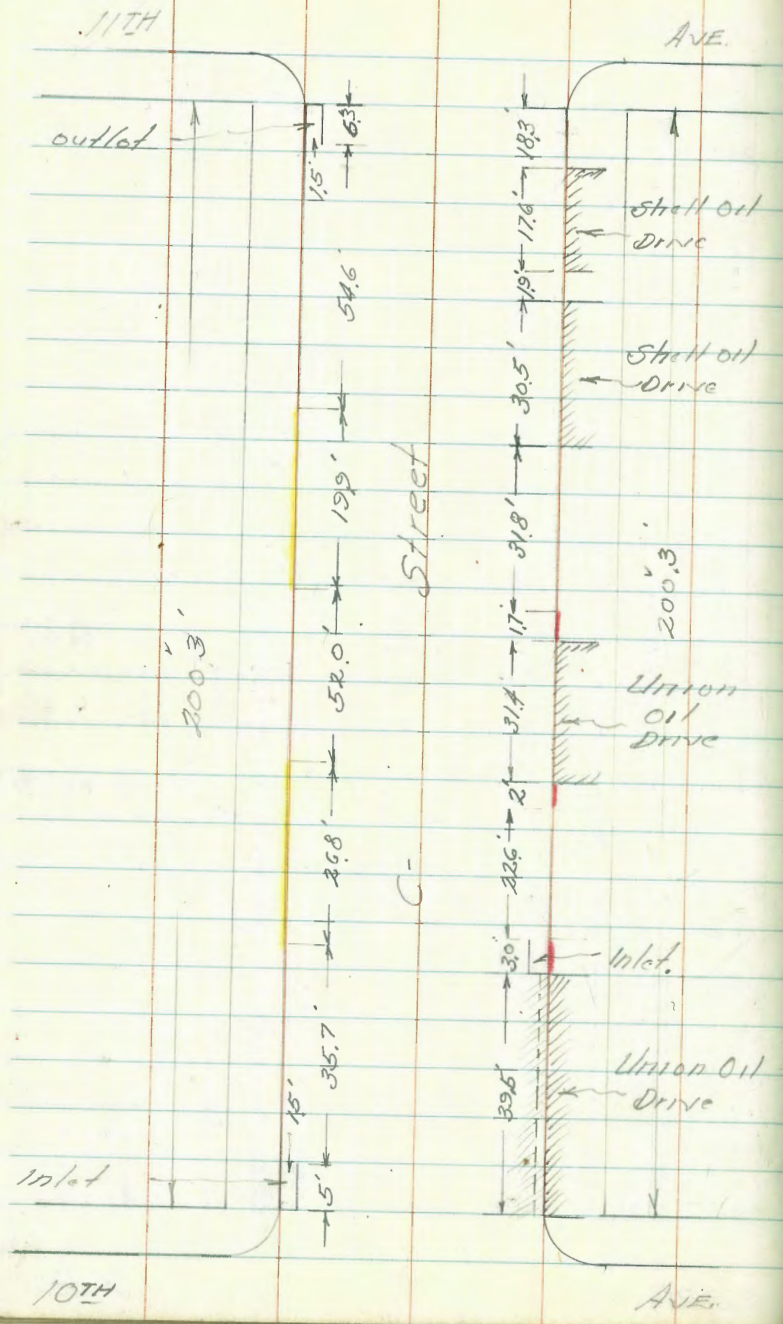 11TH
AVE.
outlot
1.5'
6.3'
54.6'
19.9'
52.0'
26.8'
35.7'
1.5'
5'
Inlet
200.3'
C- Street
18.3'
17.6'
1.9'
30.5'
31.8'
1.7'
31.4'
2'
22.6'
3.0'
39.5'
Shell Oil
Drive
Shell Oil
Drive
200.3'
Union
Oil
Drive
Inlet.
Union Oil
Drive
10TH
AVE.